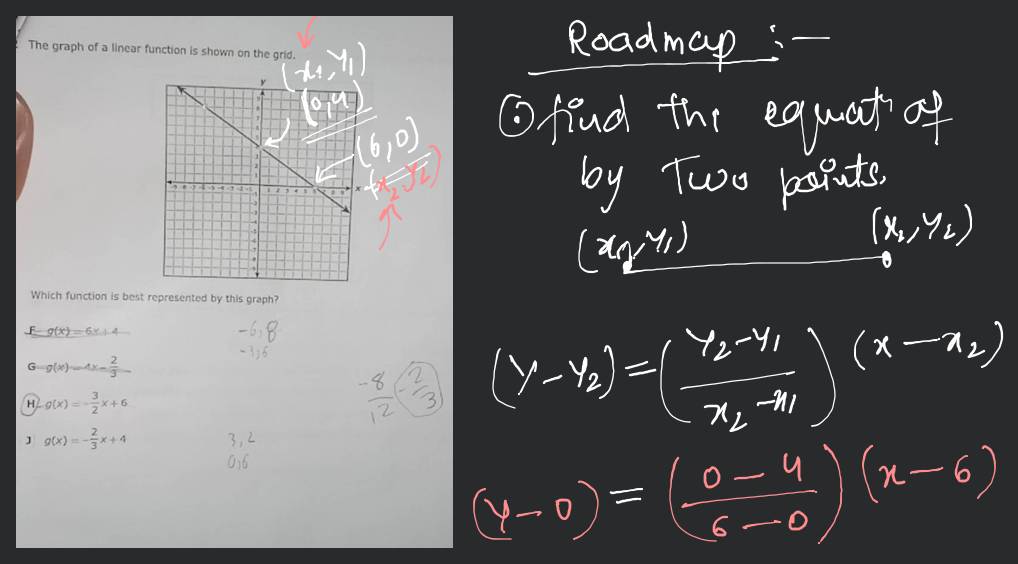 The graph of a linear function is shown on the grid.
(x1, y1)
(0,4)
(6,0)
(x2, y2)
y
x
Which function is best represented by this graph?
F g(x) = 6x + 4
G g(x) = 4x - 2/3
H g(x) = -3/2 x + 6
J g(x) = -2/3 x + 4
-6, 8
-3,6
-8/12
-2/3
3, 2
0,6
Roadmap :-
⊙ find the equatn of
by Two points.
(x1, y1) (x2, y2)
(y - y2) = (y2 - y1 / x2 - x1) (x - x2)
(y - 0) = (0 - 4 / 6 - 0) (x - 6)